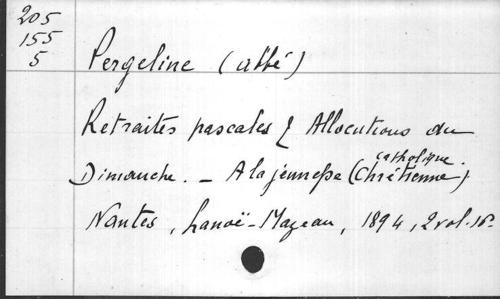 205
155
5
Pergeline (abbé)
Retraites pascales & Allocutions du
catholique.
Dimanche. - A la jeunesse (Chrétienne)
Nantes, Lanoë-Mazeau, 1894, 2 vol. 16º